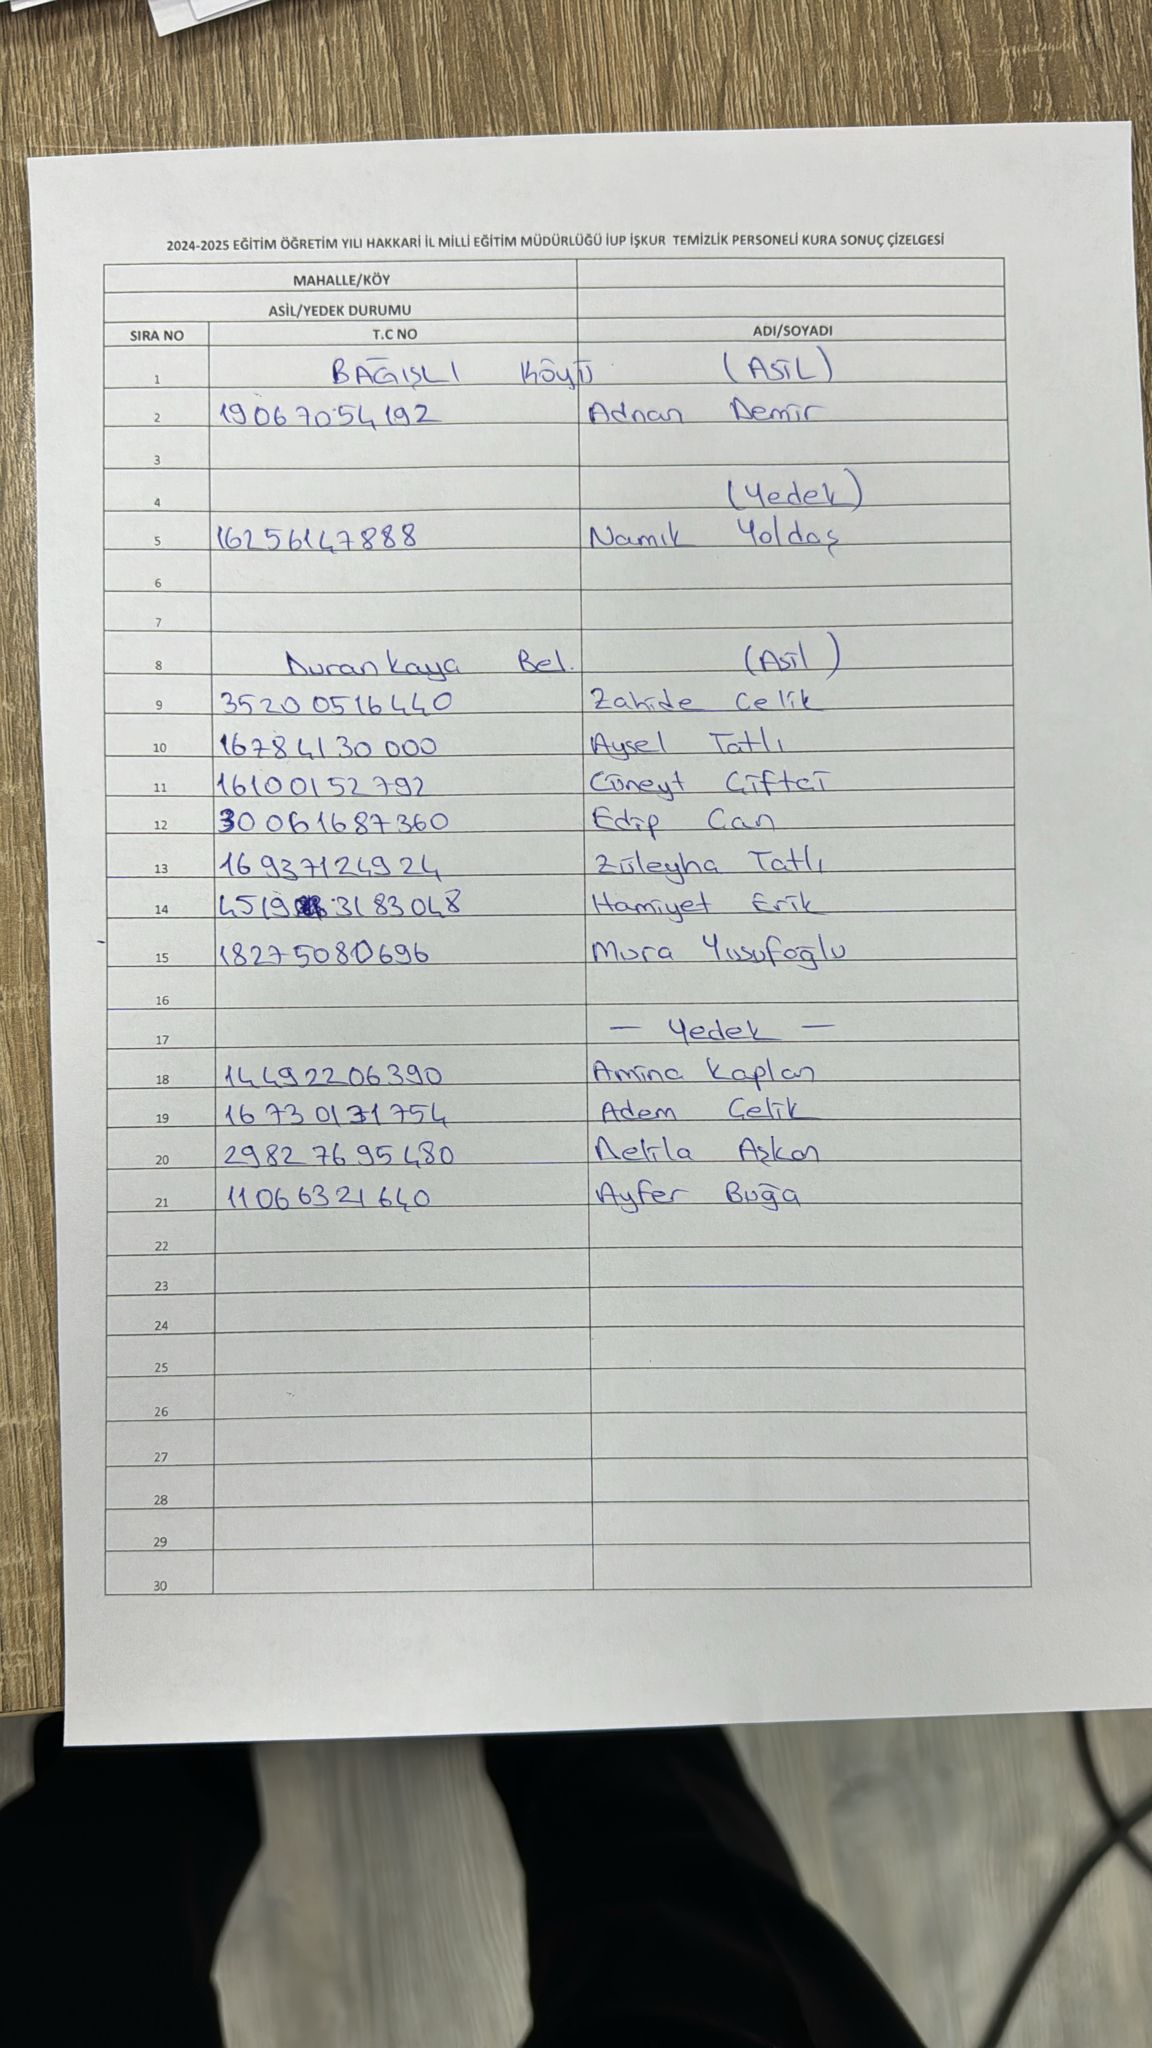 2024-2025 EĞİTİM ÖĞRETİM YILI HAKKARİ İL MİLLİ EĞİTİM MÜDÜRLÜĞÜ İUP İŞKUR TEMİZLİK PERSONELİ KURA SONUÇ ÇİZELGESİ
MAHALLE/KÖY
ASİL/YEDEK DURUMU
SIRA NO T.C NO ADI/SOYADI
1 BAĞIŞLI KÖYÜ (ASİL)
2 19067054192 Adnan Demir
3
4 (Yedek)
5 16256147888 Namık Yoldaş
6
7
8 Durankaya Bel. (Asil)
9 35200516440 Zahide Çelik
10 16784130000 Aysel Tatlı
11 16100152792 Cüneyt Çiftçi
12 30061687360 Edip Can
13 16937124924 Züleyha Tatlı
14 4519 3183048 Hamiyet Erik
15 18275080696 Yusufoğlu
16
17 — Yedek —
18 14492206390 Amina Kaplan
19 16730131754 Adem Çelik
20 29827695480 Delila Aşkan
21 11066321640 Ayfer Buğa
22
23
24
25
26
27
28
29
30